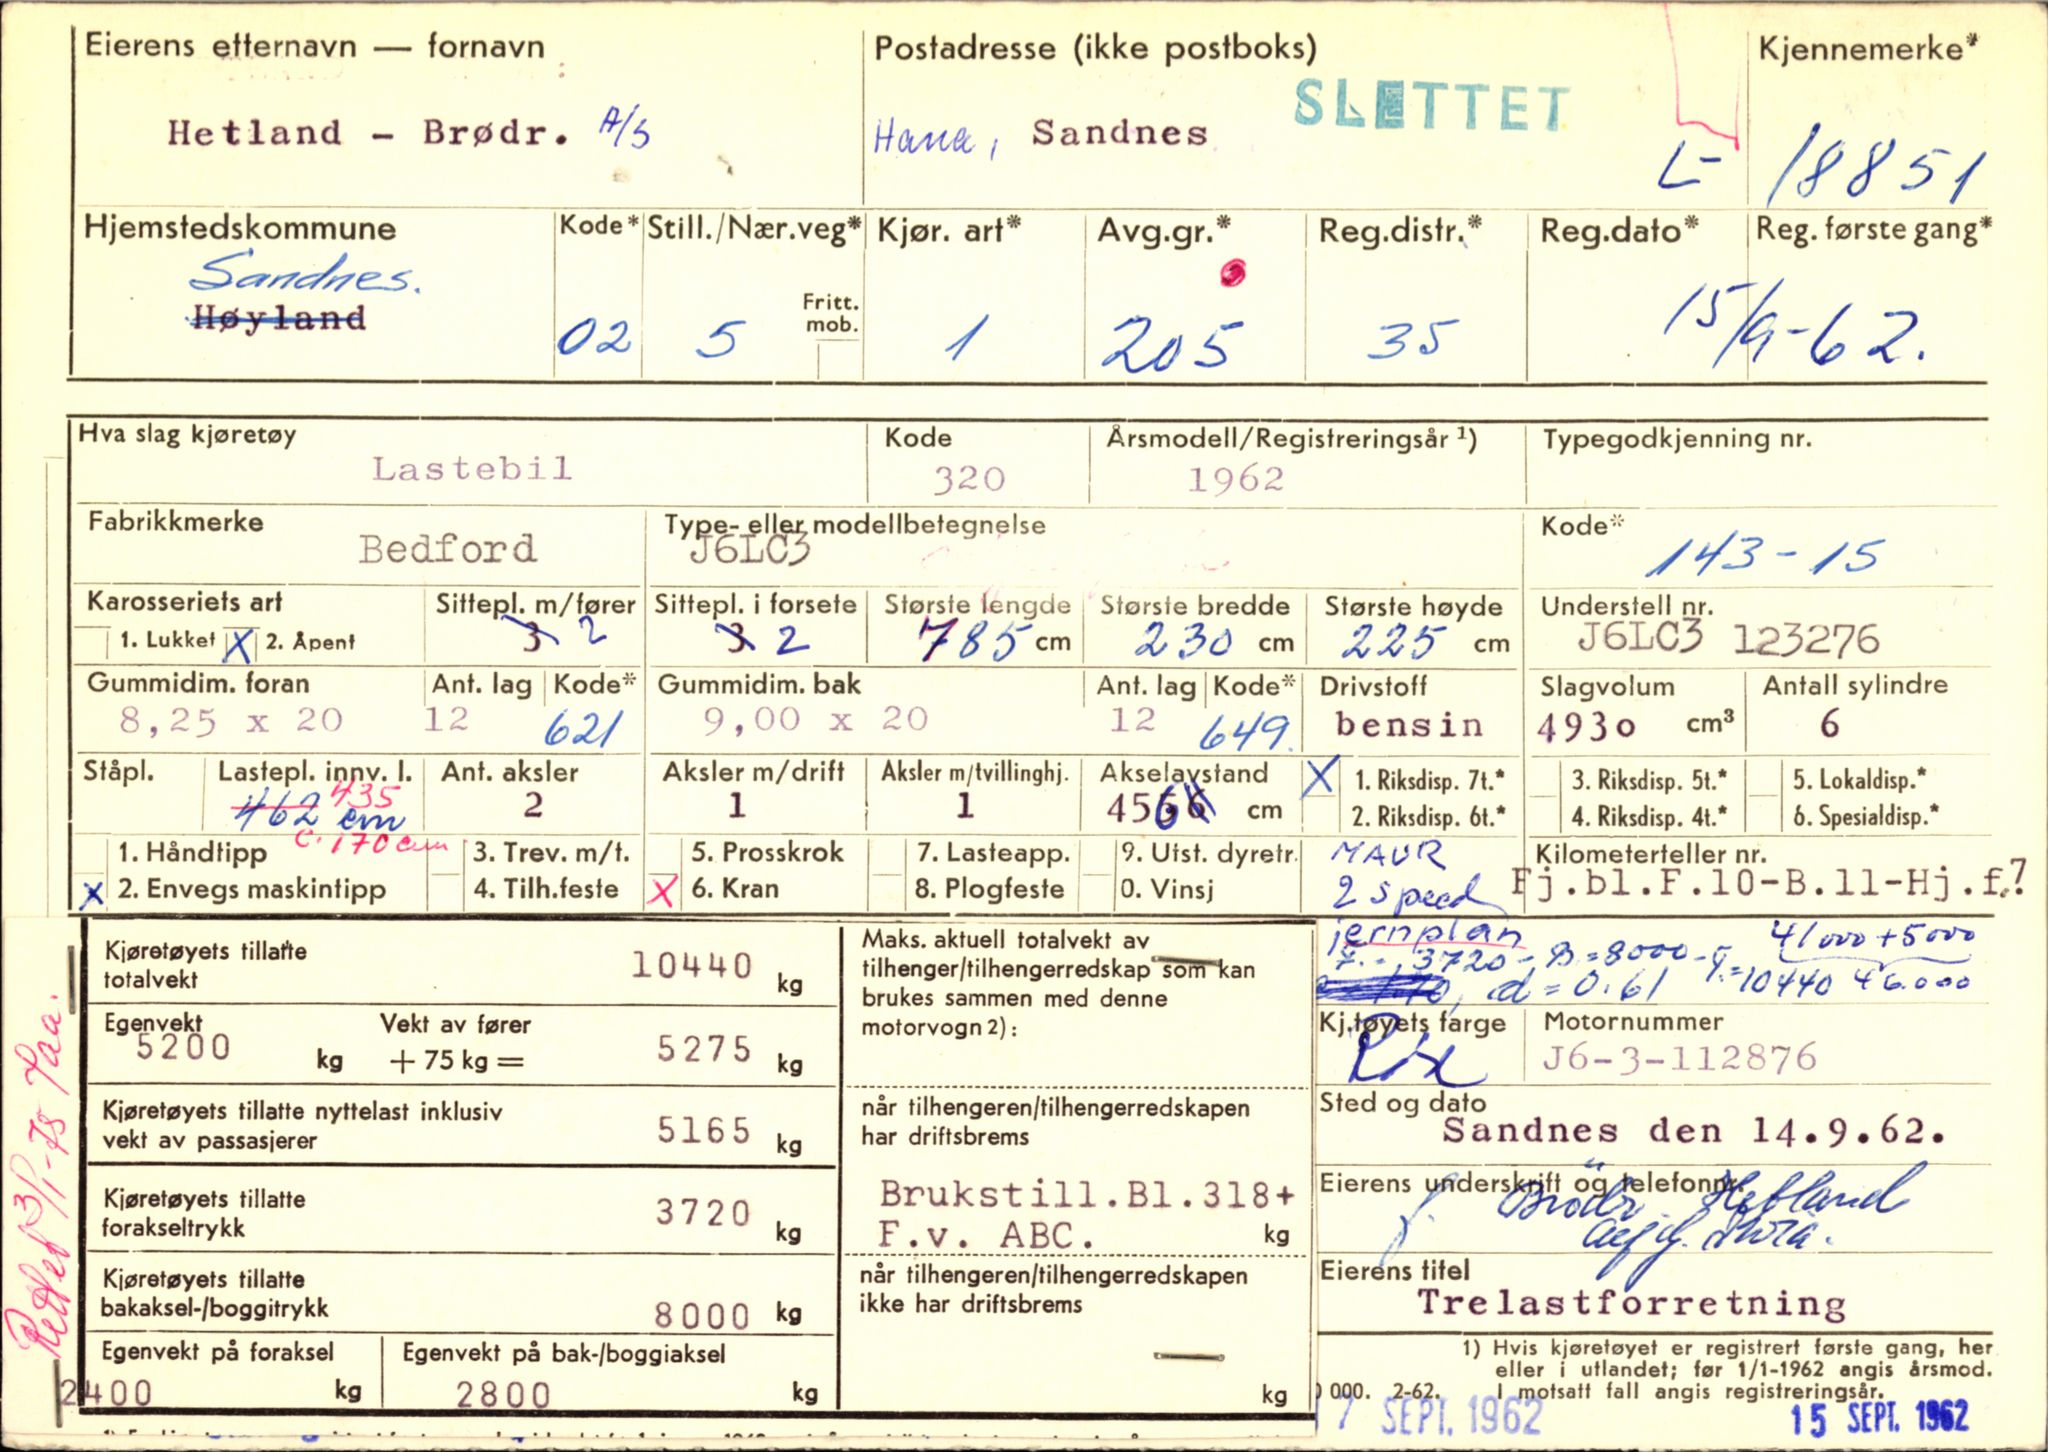 Eierens etternavn — fornavn
Hetland - Brødr. A/S
Postadresse (ikke postboks)
Hana, Sandnes
SLETTET
Kjennemerke*
L- 18851
Hjemstedskommune
Sandnes.
Høyland
Kode*
02
Still./Nær.veg*
5
Fritt.
mob.
Kjør. art*
1
Avg.gr.*
205
Reg.distr.*
35
Reg.dato*
Reg. første gang*
15/9-62.
Hva slag kjøretøy
Lastebil
Kode
320
Årsmodell/Registreringsår 1)
1962
Typegodkjenning nr.
Fabrikkmerke
Bedford
Type- eller modellbetegnelse
J6LC3
Kode*
143-15
Karosseriets art
1. Lukket X 2. Åpent
Sittepl. m/fører
3 2
Sittepl. i forsete
3 2
Største lengde
785 cm
Største bredde
230 cm
Største høyde
225 cm
Understell nr.
J6LC3 123276
Gummidim. foran
8,25 x 20
Ant. lag
12
Kode*
621
Gummidim. bak
9,00 x 20
Ant. lag
12
Kode*
649.
Drivstoff
bensin
Slagvolum
4930 cm³
Antall sylindre
6
Ståpl.
Lastepl. innv. l.
462 435
cm
c. 170 cm
Ant. aksler
2
Aksler m/drift
1
Aksler m/tvillinghj.
1
Akselavstand
cm
X 1. Riksdisp. 7t.*
2. Riksdisp. 6t.*
3. Riksdisp. 5t.*
4. Riksdisp. 4t.*
5. Lokaldisp.*
6. Spesialdisp.*
1. Håndtipp
x 2. Envegs maskintipp
3. Trev. m/t.
4. Tilh.feste
5. Prosskrok
X 6. Kran
7. Lasteapp.
8. Plogfeste
9. Utst. dyretr.
0. Vinsj
MAUR
2 speed
jernplan
Kilometerteller nr.
Fj.bl.F.10-B.11-Hj.f.?
41000+5000
3720 - B.=8000 -
d=0.61 =10440 46.000
Kjøretøyets tillatte
totalvekt
10440 kg
Egenvekt
5200 kg
Vekt av fører
+ 75 kg =
5275 kg
Kjøretøyets tillatte nyttelast inklusiv
vekt av passasjerer
5165 kg
Kjøretøyets tillatte
forakseltrykk
3720 kg
Kjøretøyets tillatte
bakaksel-/boggitrykk
8000 kg
Egenvekt på foraksel
2400 kg
Egenvekt på bak-/boggiaksel
2800 kg
Maks. aktuell totalvekt av
tilhenger/tilhengerredskap som kan
brukes sammen med denne
motorvogn 2):
når tilhengeren/tilhengerredskapen
har driftsbrems
Brukstill.Bl.318+
F.v. ABC. kg
når tilhengeren/tilhengerredskapen
ikke har driftsbrems
kg
Kj.tøyets farge
Motornummer
J6-3-112876
Sted og dato
Sandnes den 14.9.62.
Eierens underskrift og telefonnr.
Brødr. Hetland
Eierens titel
Trelastforretning
1) Hvis kjøretøyet er registrert første gang, her
eller i utlandet; før 1/1-1962 angis årsmod.
I motsatt fall angis registreringsår.
000. 2-62.
17 SEPT. 1962
15 SEPT. 1962
Rettet 3/1-75